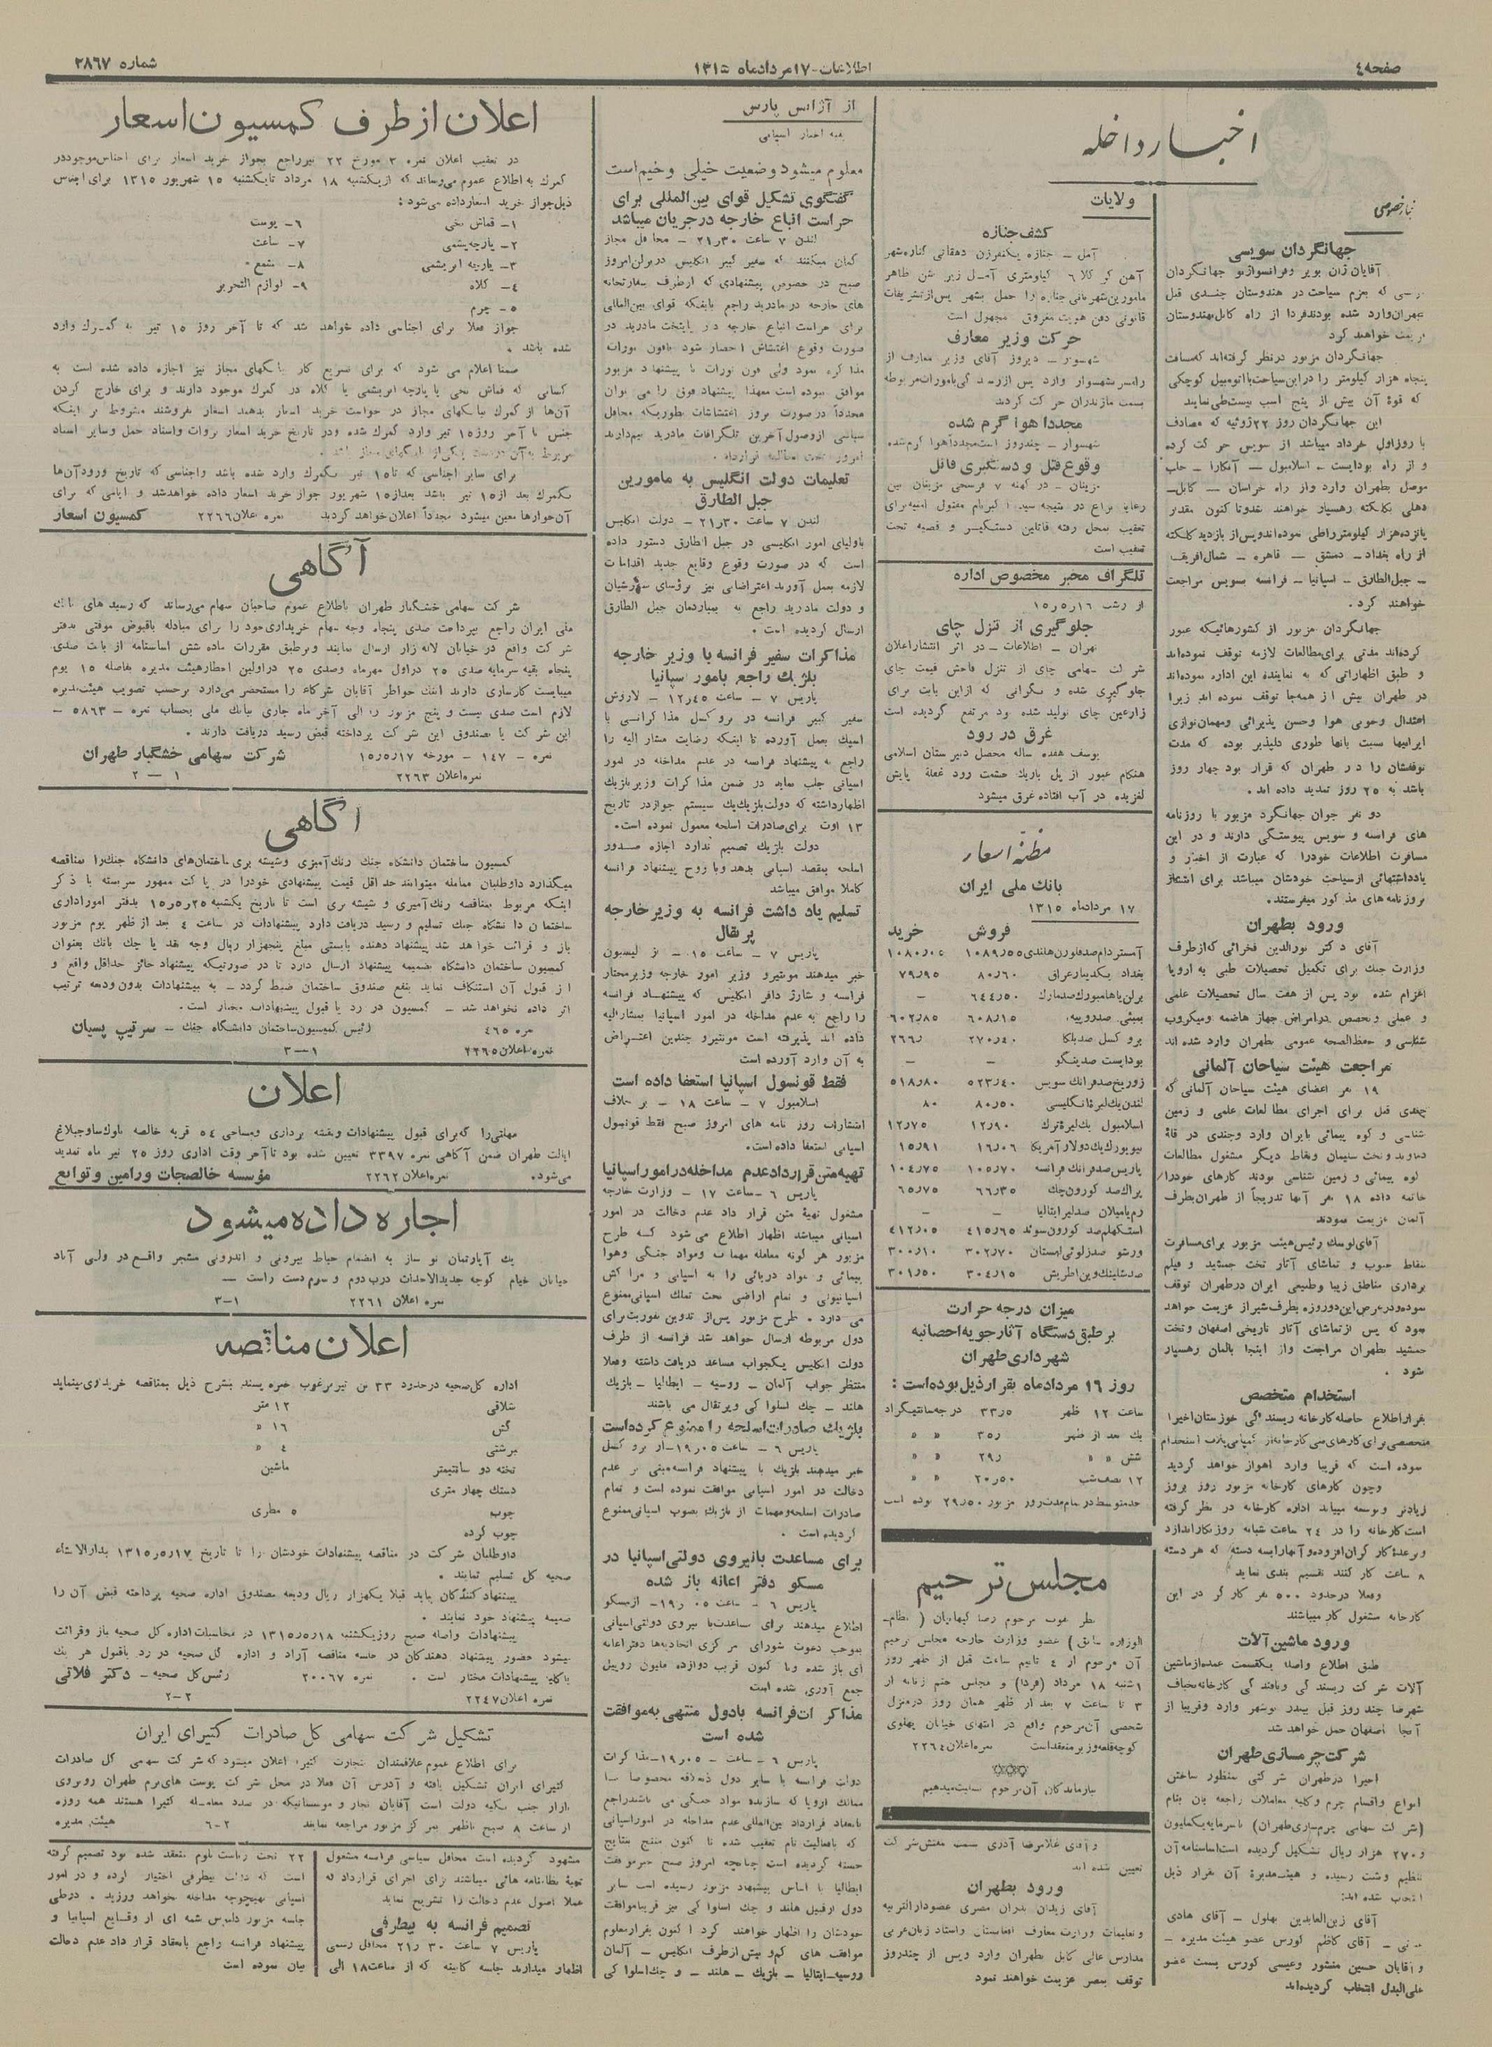 صفحه ٤
اطلاعات - ١٧ مرداد ماه ١٣١٥
شماره ٢٨٦٧
اخبار داخله
جهانگردان سویسی
آقایان ژان بویر و فرانسوا ژنو جهانگردان
که بعزم سیاحت در هندوستان چندی قبل
بتهران وارد شده بودند فردا از راه کابل بهندوستان
عزیمت خواهند کرد
جهانگردان مزبور در نظر گرفته اند که مسافت
پنجاه هزار کیلومتر را در این سیاحت با اتومبیل کوچکی
که قوهٔ آن بیش از پنج اسب نیست طی نمایند
این جهانگردان روز ٢٢ ژوئیه که مصادف
با روز اول خرداد میباشد از سویس حرکت کرده
و از راه بوداپست - اسلامبول - آنکارا - حلب
موصل بطهران وارد و از راه خراسان - کابل -
دهلی بکلکته رهسپار خواهند شد و تا کنون مقدار
پانزده هزار کیلومتر راطی نموده اند و پس از بازدید کلکته
از راه بغداد - دمشق - قاهره - شمال افریقا
- جبل الطارق - اسپانیا - فرانسه بسویس مراجعت
خواهند کرد .
جهانگردان مزبور از کشورهائیکه عبور
کرده اند مدتی برای مطالعات لازمه توقف نموده اند
و طبق اظهاراتی که به نماینده این اداره نموده اند
در طهران بیش از همه جا توقف نموده اند زیرا
اعتدال و خوبی هوا و حسن پذیرائی و مهمان نوازی
ایرانیها نسبت بآنها طوری دلپذیر بوده که مدت
توقفشان را در طهران که قرار بود چهار روز
باشد به ٢٥ روز تمدید داده اند .
دو نفر جوان جهانگرد مزبور با روزنامه
های فرانسه و سویس پیوستگی دارند و در این
مسافرت اطلاعات خود را که عبارت از اخبار و
یادداشتهائی از سیاحت خودشان میباشد برای انتشار
بروزنامه های مذکور میفرستند .
ورود بطهران
آقای دکتر نورالدین فخرائی که از طرف
وزارت جنگ برای تکمیل تحصیلات طبی به اروپا
اعزام شده بود پس از هفت سال تحصیلات علمی
و عملی و تخصص در امراض جهاز هاضمه و میکروب
شناسی و حفظ الصحه عمومی بطهران وارد شده اند
مراجعت هیئت سیاحان آلمانی
١٩ نفر اعضای هیئت سیاحان آلمانی که
چندی قبل برای اجرای مطالعات علمی و زمین
شناسی و کوه پیمائی بایران وارد و چندی در قلهٔ
دماوند و تخت سلیمان و نقاط دیگر مشغول مطالعات
کوه پیمائی و زمین شناسی بودند کارهای خود را
خاتمه داده ١٨ نفر آنها تدریجاً از طهران بطرف
آلمان عزیمت نمودند
آقای رئیس هیئت مزبور برای مسافرت
بنقاط جنوب و تماشای آثار تخت جمشید و فیلم
برداری مناطق زیبا و طبیعی ایران در طهران توقف
نموده و در عرض این دو روزه بطرف شیراز عزیمت خواهد
نمود که پس از تماشای آثار تاریخی اصفهان و تخت
جمشید بطهران مراجعت و از اینجا بآلمان رهسپار
شود .
استخدام متخصص
بقرار اطلاع حاصله کارخانه ریسندگی خوزستان اخیرا
متخصصی برای کارهای فنی کارخانه از کمپانی استخدام
نموده است که قریبا وارد اهواز خواهد گردید
و چون کارهای کارخانه مزبور روز بروز
زیادتر و توسعه مییابد اداره کارخانه در نظر گرفته
است کارخانه را در ٢٤ ساعت شبانه روز بکار اندازد
و بر عدهٔ کارگران افزوده و آنها را بسه دسته که هر دسته
٨ ساعت کار کنند تقسیم بندی نماید
و فعلا در حدود ٥٠٠ نفر کارگر در این
کارخانه مشغول کار میباشند
ورود ماشین آلات
طبق اطلاع واصله یک قسمت عمده از ماشین
آلات شرکت ریسندگی و بافندگی کارخانه
شهرضا چند روز قبل ببندر بوشهر وارد و قریبا از
آنجا اصفهان حمل خواهد شد
شرکت چرمسازی طهران
اخیرا در طهران شرکتی بمنظور ساختن
انواع و اقسام چرم و کلیه معاملات راجعه بآن بنام
(شرکت سهامی چرمسازی طهران) با سرمایه یکملیون
و ٢٧٠ هزار ریال تشکیل گردیده است اساسنامه آن
تنظیم و ثبت رسیده و هیئت مدیرهٔ آن بقرار ذیل
انتخاب شده اند :
آقای زین العابدین بهلول - آقای هادی
- آقای کاظم کورس عضو هیئت مدیره -
و آقایان حسین منشور و عیسی کورس بسمت عضو
علی البدل انتخاب گردیده اند
ولایات
کشف جنازه
آمل - جنازه یکنفر زن دهقانی کنار شهر
آهن کلا ٦ کیلومتری آمل زیر شن ظاهر
مامورین شهربانی جنازه را حمل بشهر پس از تشریفات
قانونی دفن هویت مغروق مجهول است
حرکت وزیر معارف
شهسوار - دیروز آقای وزیر معارف از
رامسر شهسوار وارد پس از رسیدگی بامورات مربوطه
بسمت مازندران حرکت کردند
مجددا هوا گرم شده
شهسوار - چند روز است مجددا هوا گرم شده
وقوع قتل و دستگیری قاتل
مزینان - در کهنه ٧ فرسخی مزینان بین
رعایا نزاع در نتیجه سید اکبر نام مقتول امنیه برای
تعقیب بمحل رفته قاتلین دستگیر و قضیه تحت
تعقیب است
تلگراف مخبر مخصوص اداره
از رشت ١٦ر٥ر١٥
جلوگیری از تنزل چای
تهران - اطلاعات - در اثر انتشار اعلان
شرکت سهامی چای از تنزل فاحش قیمت چای
جلوگیری شده و نگرانی که از این بابت برای
زارعین چای تولید شده بود مرتفع گردیده است
غرق در رود
یوسف هفده ساله محصل دبیرستان اسلامی
هنگام عبور از پل باریک خشت رود غفلة پایش
لغزیده در آب افتاده غرق میشود
مظنه اسعار
بانک ملی ایران
١٧ مرداد ماه ١٣١٥
فروش خرید
آمستردام صد فلورن هلندی ١٠٨٩ر٥٥ ١٠٨٠ر٠٥
بغداد یک دینار عراقی ٨٠ر٦٠ ٧٩ر٩٥
برلن یا هامبورک صد مارک ٦٤٤ر٥٠ -
بمبئی صد روپیه ٦٠٨ر١٥ ٦٠٢ر٨٥
بروکسل صد بلگا ٢٧٠ر٤٠ ٢٦٦ر
بوداپست صد پنگو - -
زوریخ صد فرانک سویس ٥٢٣ر٤٠ ٥١٨ر٨٠
لندن یک لیرهٔ انگلیسی ٨٠ر٥٠ ٨٠
اسلامبول یک لیرهٔ ترک ١٢ر٩٠ ١٢ر٧٥
نیویورک یک دولار آمریکا ١٦ر٠٦ ١٥ر٩١
پاریس صد فرانک فرانسه ١٠٥ر٧٠ ١٠٤ر٧٥
پراگ صد کورون چک ٦٦ر٣٥ ٦٥ر٧٥
رم یا میلان صد لیر ایتالیا - -
استکهلم صد کورون سوئد ٤١٥ر٦٥ ٤١٢ر٠٥
ورشو صد زلوتی لهستان ٣٠٢ر٧٠ ٣٠٠ر١٠
صد شیلینگ وین اطریش ٣٠٤ر١٥ ٣٠١ر٥٠
میزان درجه حرارت
بر طبق دستگاه آثار جویه احصائیه
شهرداری طهران
روز ١٦ مرداد ماه بقرار ذیل بوده است :
ساعت ١٢ ظهر ٣٣ر٥ درجه سانتیگراد
یک بعد از ظهر ٣٥ر « «
شش « « ٢٩ر « «
١٢ نصف شب ٢٠ر٥٠ « «
حد متوسط در تمام مدت روز مزبور ٢٩ر٥٠ بوده است
مجلس ترحیم
نظر بفوت مرحوم رضا کیهانیان (نظام -
الوزاره سابق) عضو وزارت خارجه مجلس ترحیم
آن مرحوم از ٤ تا نیم ساعت قبل از ظهر روز
١شنبه ١٨ مرداد (فردا) و مجلس ختم زنانه از
٣ تا ساعت ٧ بعد از ظهر همان روز در منزل
شخصی آن مرحوم واقع در انتهای خیابان پهلوی
کوچه قلعه وزیر منعقد است نمره اعلان ٢٢٦٤
ببازماندگان آن مرحوم تسلیت میدهیم
و آقای غلامرضا آذری بسمت مفتش شرکت
تعیین شده اند
ورود بطهران
آقای زیدان بدران مصری عضو دارالتربیه
و تعلیمات وزارت معارف افغانستان و استاد زبان عربی
مدارس عالی کابل بطهران وارد و پس از چند روز
توقف بمصر عزیمت خواهند نمود
از آژانس پارس
بقیه اخبار اسپانی
معلوم میشود وضعیت خیلی وخیم است
گفتگوی تشکیل قوای بین المللی برای
حراست اتباع خارجه در جریان میباشد
لندن ٧ ساعت ٣٠ر٢١ - محافل مجاز
گمان میکنند که سفیر کبیر انگلیس در برلن امروز
صبح در خصوص پیشنهادی که از طرف سفارتخانه
های خارجه در مادرید راجع باینکه قوای بین المللی
برای حراست اتباع خارجه در پایتخت مادرید در
صورت وقوع اغتشاش احضار شود با فون نورات
مذاکره نمود ولی فون نورات با پیشنهاد مزبور
موافق نبوده است معهذا پیشنهاد فوق را می توان
مجدداً در صورت بروز اغتشاشات بطوریکه محافل
سیاسی از وصول آخرین تلگرافات مادرید بیم دارند
امروز تحت مطالعه قرار داد .
تعلیمات دولت انگلیس به مامورین
جبل الطارق
لندن ٧ ساعت ٣٠ر٢١ - دولت انگلیس
باولیای امور انگلیسی در جبل الطارق دستور داده
است که در صورت وقوع وقایع جدید اقدامات
لازمه بعمل آورند اعتراضاتی نیز برؤسای شورشیان
و دولت مادرید راجع به بمباردمان جبل الطارق
ارسال گردیده است .
مذاکرات سفیر فرانسه با وزیر خارجه
بلژیک راجع بامور اسپانیا
پاریس ٧ - ساعت ٤٥ر١٢ - لاروش
سفیر کبیر فرانسه در بروکسل مذاکراتی با
اسپاک بعمل آورده تا اینکه رضایت مشارالیه را
راجع به پیشنهاد فرانسه در عدم مداخله در امور
اسپانی جلب نماید در ضمن مذاکرات وزیر بلژیک
اظهار داشته که دولت بلژیک یک سیستم جواز در تاریخ
١٣ اوت برای صادرات اسلحه معمول نموده است .
دولت بلژیک تصمیم ندارد اجازه صدور
اسلحه بمقصد اسپانی بدهد و با روح پیشنهاد فرانسه
کاملا موافق میباشد
تسلیم یاد داشت فرانسه به وزیر خارجه
پرتقال
پاریس ٧ - ساعت ١٥ - از لیسبون
خبر میدهند مونتیرو وزیر امور خارجه وزیر مختار
فرانسه و شارژ دافر انگلیس که پیشنهاد فرانسه
را راجع به عدم مداخله در امور اسپانیا بمشارالیه
داده اند پذیرفته است مونتیرو چندین اعتراض
به آن وارد آورده است
فقط قونسول اسپانیا استعفا داده است
اسلامبول ٧ - ساعت ١٨ - بر خلاف
انتشارات روز نامه های امروز صبح فقط قونسول
اسپانی استعفا داده است .
تهیه متن قرارداد عدم مداخله در امور اسپانیا
پاریس ٦ - ساعت ١٧ - وزارت خارجه
مشغول تهیهٔ متن قرار داد عدم دخالت در امور
اسپانی میباشد اظهار اطلاع می شود که طرح
مزبور هر گونه معامله مهمات و مواد جنگی و هوا
پیمائی و مواد دریائی را به اسپانی و مراکش
اسپانیولی و تمام اراضی تحت تملک اسپانی ممنوع
می دارد . طرح مزبور پس از تدوین بفوریت برای
دول مربوطه ارسال خواهد شد فرانسه از طرف
دولت انگلیس یک جواب مساعد دریافت داشته و فعلا
منتظر جواب آلمان - روسیه - ایطالیا - بلژیک
هلند - چک اسلواکی و پرتقال می باشند
بلژیک صادرات اسلحه را ممنوع کرده است
پاریس ٦ - ساعت ٠٥ر١٩ - از بروکسل
خبر میدهند بلژیک با پیشنهاد فرانسه مبنی بر عدم
دخالت در امور اسپانی موافقت نموده است و تمام
صادرات اسلحه و مهمات از بلژیک بصوب اسپانی ممنوع
گردیده است .
برای مساعدت با نیروی دولتی اسپانیا در
مسکو دفتر اعانه باز شده
پاریس ٦ - ساعت ٠٥ر١٩ - از مسکو
اطلاع میدهند برای مساعدت با نیروی دولتی اسپانی
بموجب دعوت شورای مرکزی اتحادیه ها دفتر اعانه
ای باز شده و تا کنون قریب دوازده ملیون روبیل
جمع آوری شده است
مذاکرات فرانسه با دول منتهی به موافقت
شده است
پاریس ٦ - ساعت ٠٥ر١٩ - مذاکرات
دولت فرانسه با سایر دول ذیعلاقه مخصوصا با
ممالک اروپا که سازنده مواد جنگی می باشند راجع
بانعقاد قرارداد بین المللی عدم مداخله در امور اسپانی
که با فعالیت تام تعقیب شده تا کنون منتج بنتایج
حسنه گردیده است چنانچه امروز صبح خبر موافقت
ایطالیا با اساس پیشنهاد مزبور رسیده است سایر
دول از قبیل هلند و چک اسلواکی نیز قریبا موافقت
خودشان را اظهار خواهند کرد تا کنون بقرار معلوم
موافقت های کم و بیش از طرف انگلیس - آلمان
روسیه - ایطالیا - بلژیک - هلند - و چک اسلواکی
مشهود گردیده است محافل سیاسی فرانسه مشغول
تهیهٔ نظامنامه هائی میباشند برای اجرای قرارداد که
عملا اصول عدم دخالت را تشریح نماید
تصمیم فرانسه به بیطرفی
پاریس ٧ ساعت ٣٠ر٢١ محافل رسمی
اظهار میدارند جلسه کابینه که از ساعت ١٨ الی
٢٢ تحت ریاست بلوم منعقد شده بود تصمیم گرفته
است که دولت بیطرفی اختیار کرده و در امور
اسپانی بهیچوجه مداخله خواهد ورزید . در طی
جلسه مزبور دلبوس شمه ای از وقایع اسپانیا و
پیشنهاد فرانسه راجع بانعقاد قرار داد عدم دخالت
بیان نموده است
اعلان از طرف کمسیون اسعار
در تعقیب اعلان نمره ٣ مورخ ٢٢ تیر راجع بجواز خرید اسعار برای اجناس موجود در
گمرک به اطلاع عموم میرساند که از یکشنبه ١٨ مرداد تا یکشنبه ١٥ شهریور ١٣١٥ برای اجناس
ذیل جواز خرید اسعار داده می شود :
١- قماش نخی ٦- پوست
٢- پارچه پشمی ٧- ساعت
٣- پارچه ابریشمی ٨- شمع
٤- کلاه ٩- لوازم التحریر
٥- چرم
جواز فعلا برای اجناسی داده خواهد شد که تا آخر روز ١٥ تیر به گمرک وارد
شده باشد .
ضمنا اعلام می شود که برای تسریع کار بانکهای مجاز نیز اجازه داده شده است به
کسانی که قماش نخی یا پارچه ابریشمی یا کلاه در گمرک موجود دارند و برای خارج کردن
آنها از گمرک ببانکهای مجاز درخواست خرید اسعار بدهند اسعار بفروشند مشروط بر اینکه
جنس تا آخر روز ١٥ تیر وارد گمرک شده و در تاریخ خرید اسعار بروات و اسناد حمل و سایر اسناد
مربوط به آن در دست یکی از بانکهای مجاز باشد .
برای سایر اجناسی که تا ١٥ تیر بگمرک وارد شده باشد و اجناسی که تاریخ ورود آنها
بگمرک بعد از ١٥ تیر باشد بعد از ١٥ شهریور جواز خرید اسعار داده خواهد شد و ایامی که برای
آن جوازها معین میشود مجدداً اعلان خواهد گردید نمره اعلان ٢٢٦٦ کمسیون اسعار
آگاهی
شرکت سهامی خشگبار طهران باطلاع عموم صاحبان سهام میرساند که رسید های بانک
ملی ایران راجع بپرداخت صدی پنجاه وجه سهام خریداری خود را برای مبادله باقبوض موقتی بدفتر
شرکت واقع در خیابان لاله زار ارسال نمایند و بر طبق مقررات ماده شش اساسنامه از بابت صدی
پنجاه بقیه سرمایه صدی ٢٥ در اول مهرماه و صدی ٢٥ در اولین اخطار هیئت مدیره بفاصله ١٥ یوم
میبایست کارسازی دارند اینک خواطر آقایان شرکاء را مستحضر میدارد برحسب تصویب هیئت مدیره
لازم است صدی بیست و پنج مزبور را الی آخر ماه جاری ببانک ملی بحساب نمره - ٥٨٦٣ -
این شرکت یا بصندوق این شرکت پرداخته قبض رسید دریافت دارند .
نمره - ١٤٧ - مورخه ١٧ر٥ر١٥ شرکت سهامی خشگبار طهران
نمره اعلان ٢٢٦٣ ١ - ٢
آگاهی
کمسیون ساختمان دانشگاه جنگ رنگ آمیزی و شیشه بری ساختمان های دانشگاه جنگ را بمناقصه
میگذارد داوطلبان معامله میتوانند حداقل قیمت پیشنهادی خود را در پاکت ممهور سربسته با ذکر
اینکه مربوط بمناقصه رنگ آمیزی و شیشه بری است تا تاریخ یکشنبه ٢٥ر٥ر١٥ بدفتر امور اداری
ساختمان دانشگاه جنگ تسلیم و رسید دریافت دارد پیشنهادات در ساعت ٤ بعد از ظهر یوم مزبور
باز و قرائت خواهد شد پیشنهاد دهنده بایستی مبلغ پنجهزار ریال وجه نقد یا چک بانک بعنوان
کمسیون ساختمان دانشگاه بضمیمه پیشنهاد ارسال دارد تا در صورتیکه پیشنهاد حائز حداقل واقع و
از قبول آن استنکاف نماید بنفع صندوق ساختمان ضبط گردد - به پیشنهادات بدون ودیعه ترتیب
اثر داده نخواهد شد - کمسیون در رد یا قبول پیشنهادات مختار است .
نمره ٤٦٥ رئیس کمیسیون ساختمان دانشگاه جنگ - سرتیپ پسیان
نمره اعلان ٢٢٦٥ ١-٣
اعلان
مهلتی را که برای قبول پیشنهادات و نقشه برداری و مساحی ٥٤ قریه خالصه بلوک ساوجبلاغ
ایالت طهران ضمن آگاهی نمره ٣٣٩٧ تعیین شده بود تا آخر وقت اداری روز ٢٥ تیر ماه تمدید
می شود . نمره اعلان ٢٢٦٢ مؤسسه خالصجات ورامین و توابع
اجاره داده میشود
یک آپارتمان نو ساز به انضمام حیاط بیرونی و اندرونی مشجر واقع در ولی آباد
خیابان خیام کوچه جدیدالاحداث درب دوم و سوم دست راست -
نمره اعلان ٢٢٦١ ١-٣
اعلان مناقصه
اداره کل صحیه در حدود ٣٣ تن تیر مرغوب خبره پسند بشرح ذیل بمناقصه خریداری مینماید
شلاقی ١٢ متر
گش ١٦ «
برشتی ٤ «
تخته دو سانتیمتر ماشین
دستک چهار متری
چوب ٥ مطری
چوب گرده
داوطلبان شرکت در مناقصه پیشنهادات خودشان را تا تاریخ ١٧ر٥ر١٣١٥ بدارالانشاء
صحیه کل تسلیم نمایند .
پیشنهاد کنندگان باید قبلا یکهزار ریال ودیعه بصندوق اداره صحیه پرداخته قبض آن را
ضمیمه پیشنهاد خود نمایند .
پیشنهادات واصله صبح روز یکشنبه ١٨ر٥ر١٣١٥ در محاسبات اداره کل صحیه باز و قرائت
میشود حضور پیشنهاد دهندگان در جلسه مناقصه آزاد و اداره کل صحیه در رد یا قبول هر یک
یا کلیه پیشنهادات مختار است . نمره ٢٠٠٦٧ رئیس کل صحیه - دکتر فلاتی
نمره اعلان ٢٢٤٧ ٢-٢
تشکیل شرکت سهامی کل صادرات کتیرای ایران
برای اطلاع عموم علاقمندان بتجارت کتیرا اعلان میشود که شرکت سهامی کل صادرات
کتیرای ایران تشکیل یافته و آدرس آن فعلا در محل شرکت پوست های بره طهران روبروی
بازار جنب تکیه دولت است آقایان تجار و موسساتیکه در صدد معامله کتیرا هستند همه روزه
از ساعت ٨ صبح تا ظهر بمرکز مزبور مراجعه نمایند ٢-٦ هیئت مدیره